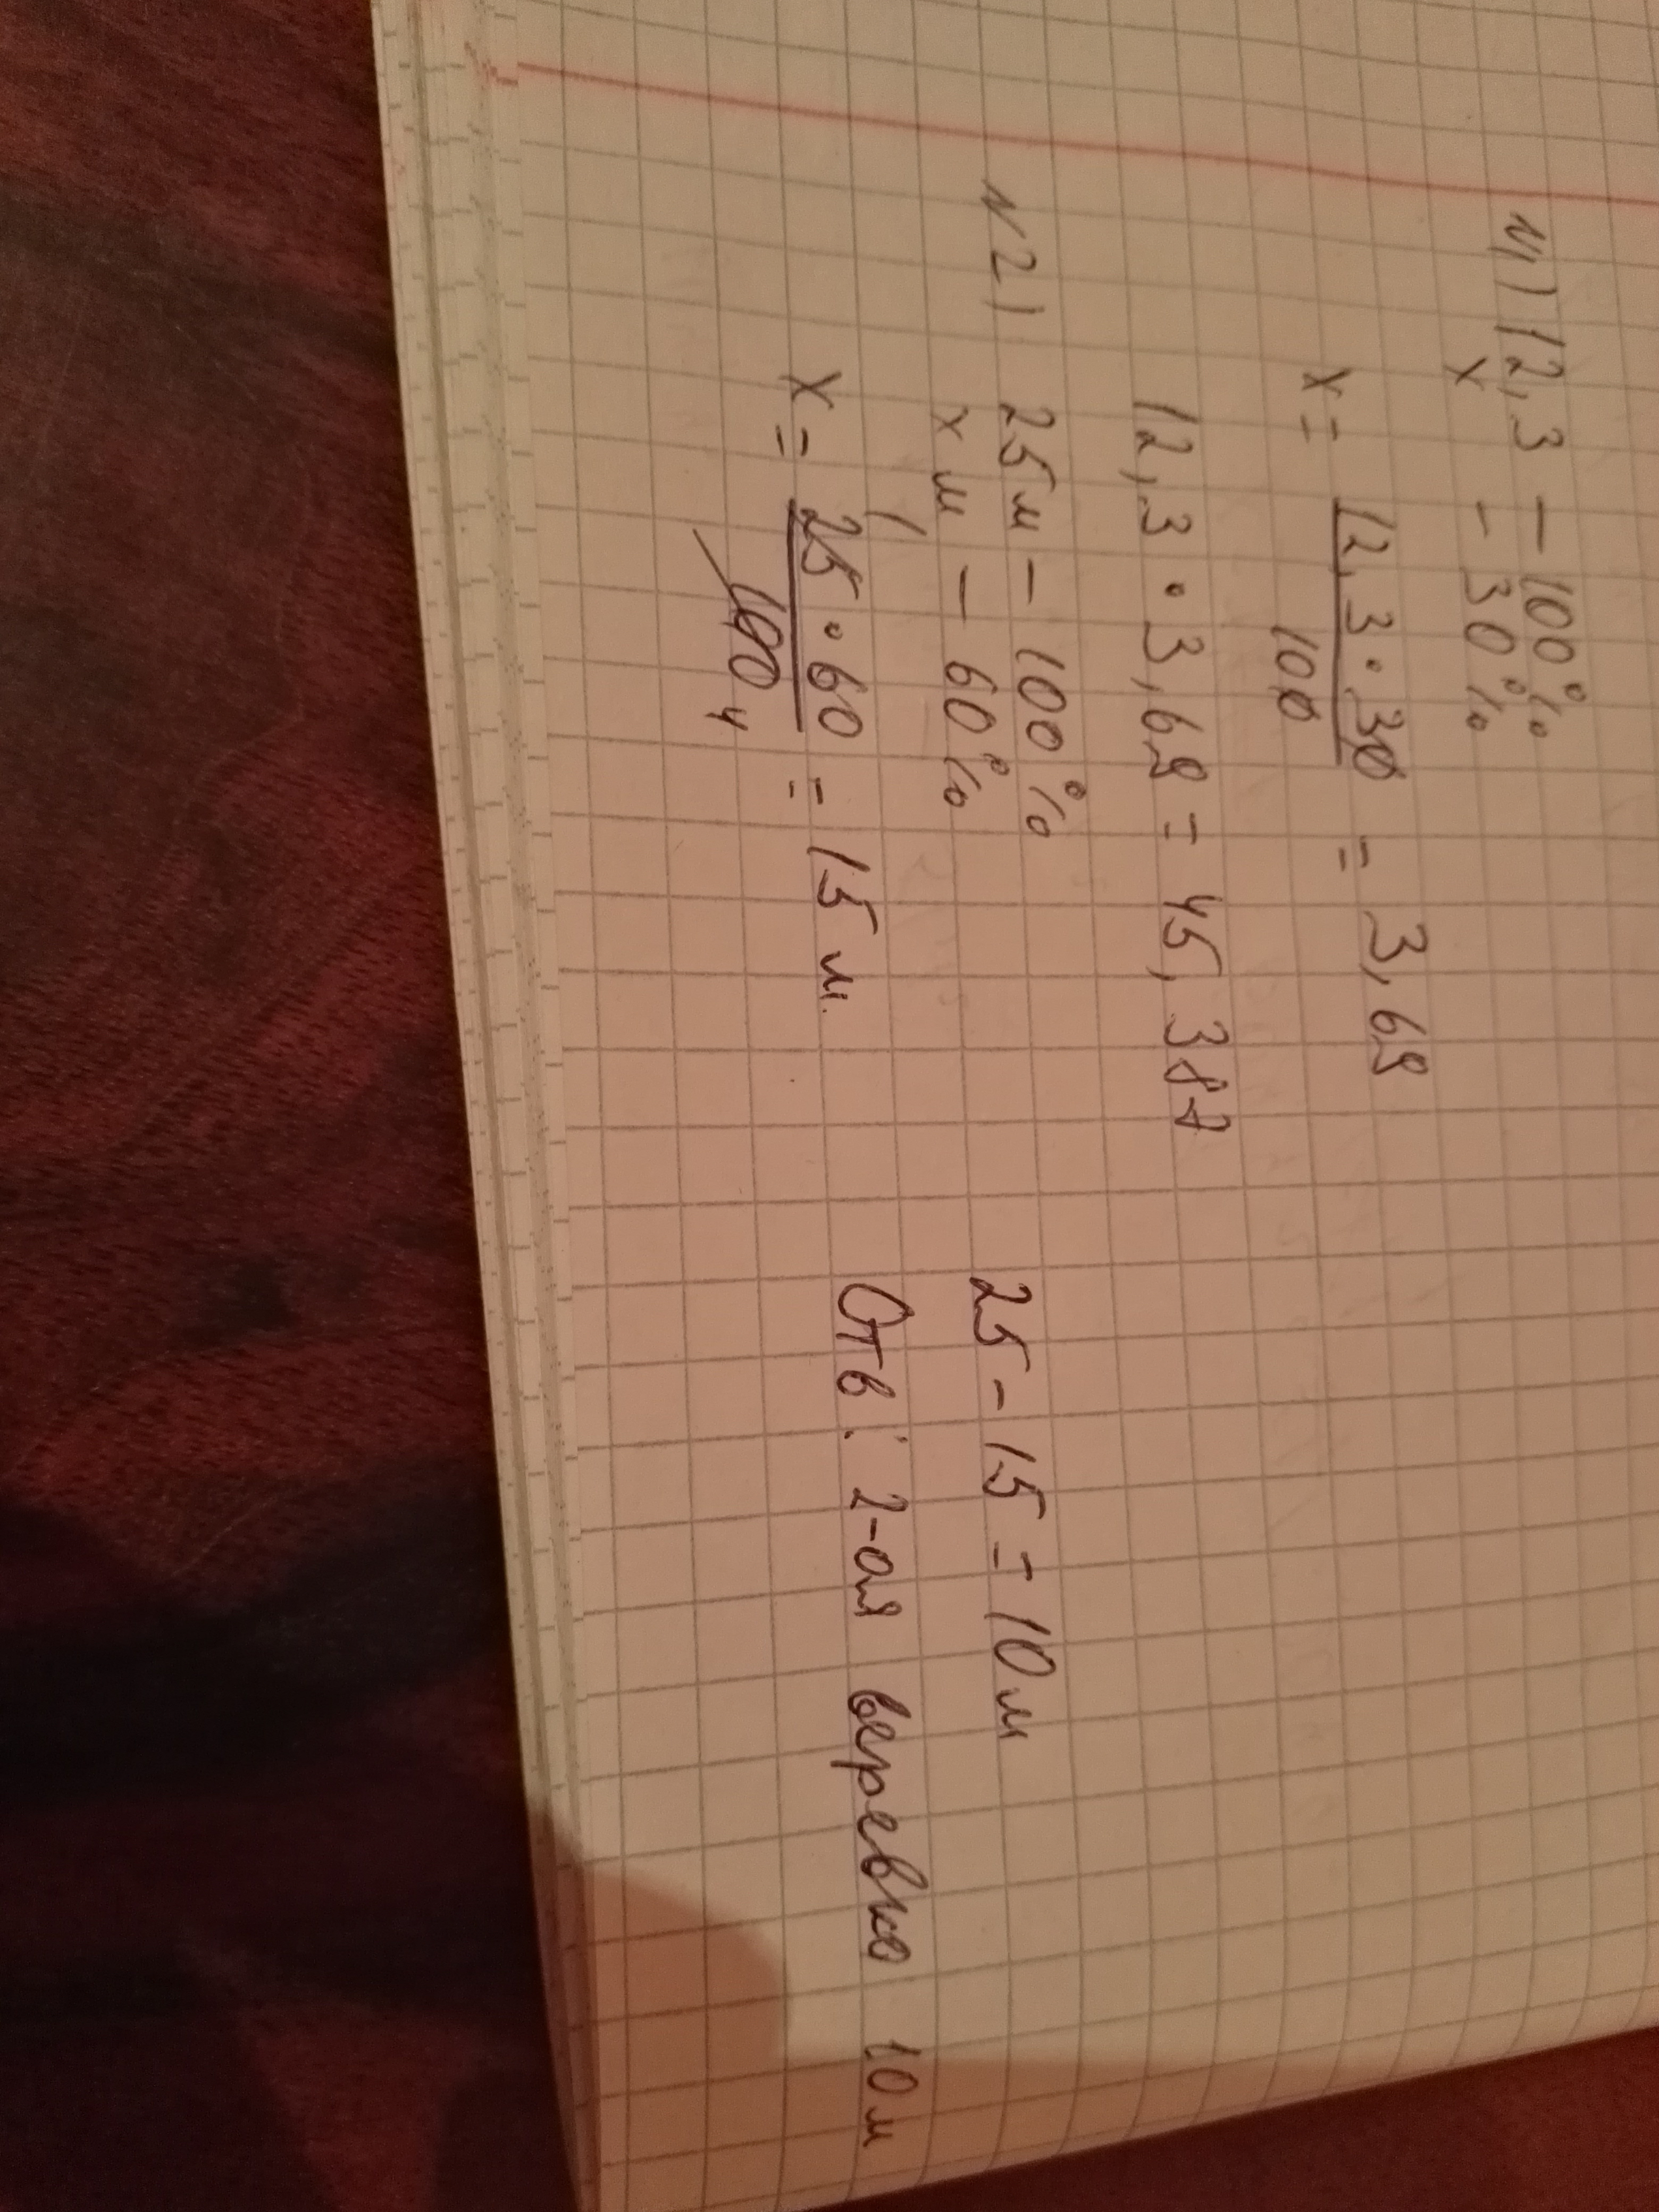 N1) 12,3 – 100%
x – 30%
x = 12,3 · 30 / 100 = 3,69
12,3 · 3,69 = 45,387
N2) 25м – 100%
x м – 60%
x = 25 · 60 / 100 = 15 м
1
4
25 – 15 = 10 м
Отв: 2-ая веревка 10 м